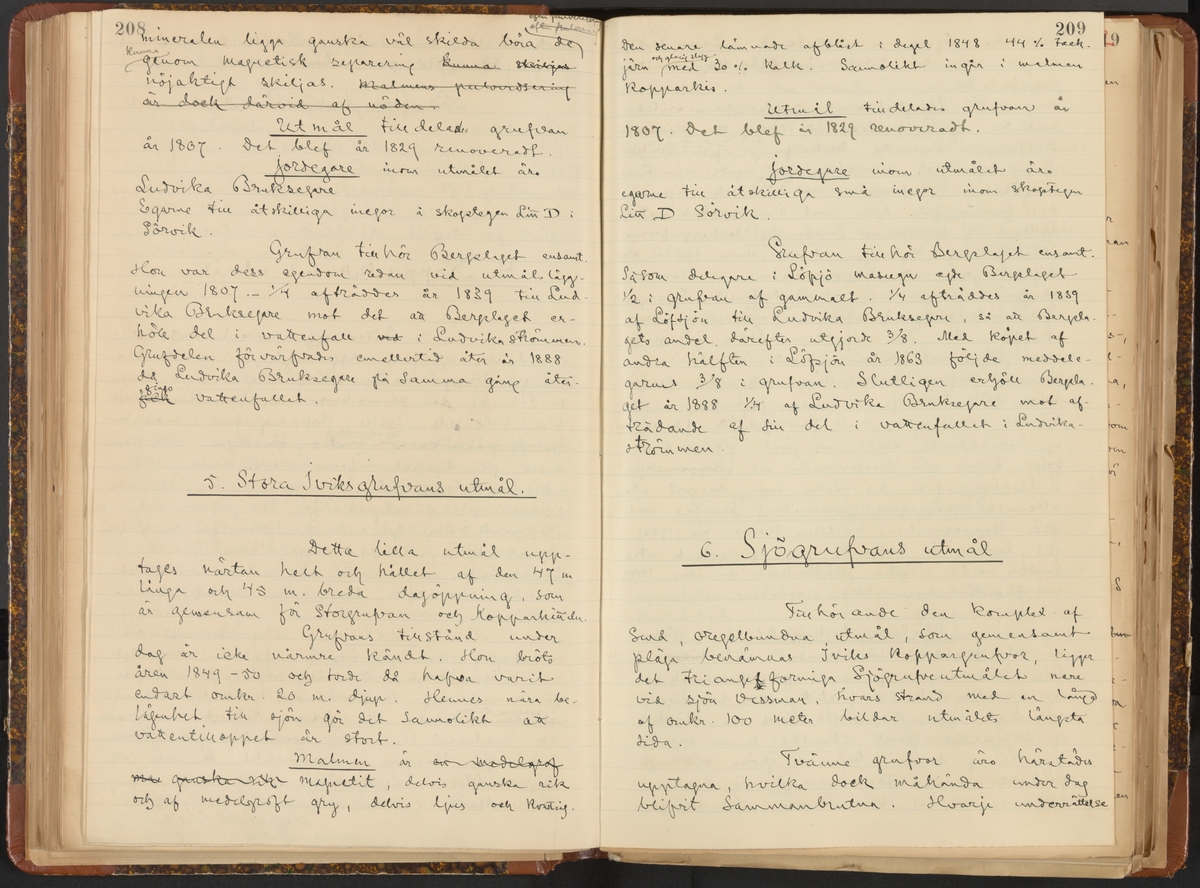 208
mineralen ligga ganska väl skilda böra de
kunna
genom magnetisk separering kunna skiljas
nöjaktigt skiljas. Malmens pulverisering
är dock därvid af nöden.
Utmål tilldelades grufvan
år 1807. Det blef år 1829 renoveradt.
Jordegare inom utmålet äro
Ludvika Bruksegare
Egarne till åtskilliga inegor å skogstegen Litt D i
Sörvik.
Grufvan tillhör Bergslaget ensamt.
Hon var dess egendom redan vid utmålslägg-
ningen 1807. – 1/4 afträddes år 1839 till Lud-
vika Bruksegare mot det att Bergslaget er-
höll del i vattenfall ved i Ludvikaströmmen.
Grufdelen förvärfvades emellertid åter år 1888
då Ludvika Bruksegare på samma gång åter-
fick vattenfallet.
5. Stora Iviksgrufvans utmål.
Detta lilla utmål upp-
tages nästan helt och hållet af den 47 m
långa och 45 m. breda dagöppning, som
är gemensam för Storgrufvan och Kopparhällen.
Grufvans tillstånd under
dag är icke närmre kändt. Hon bröts
åren 1849-50 och torde då hafva varit
endast omkr. 20 m. djup. Hennes nära be-
lägenhet till sjön gör det sannolikt att
vattentilloppet är stort.
Malmen är en medelgrof
ganska rik magnetit, delvis ganska rik
och af medelgroft gry, delvis ljus och kvartsig.
209
Den senare lämnade afblåst i degel 1848 44 % tack-
och glasig slagg
järn med 30 % kalk. Sannolikt ingår i malmen
kopparkis.
Utmål tilldelades grufvan år
1807. Det blef år 1829 renoveradt.
Jordegare inom utmålet äro
egarne till åtskilliga små inegor inom skogstegen
Litt D Sörvik.
Grufvan tillhör Bergslaget ensamt.
Såsom delegare i Löfsjö masugn egde Bergslaget
1/2 i grufvan af gammalt. 1/4 afträddes år 1839
af Löfsjön till Ludvika Bruksegare, så att Bergsla-
gets andel därefter utgjorde 3/8. Med köpet af
andra hälften i Löfsjön år 1863 följde meddele-
garens 3/8 i grufvan. Slutligen erhöll Bergsla-
get år 1888 1/4 af Ludvika Bruksegare mot af-
trädande af sin del i vattenfallet i Ludvika-
strömmen.
6. Sjögrufvans utmål
Tillhörande den komplex af
små, oregelbundna, utmål, som gemensamt
pläga benämnas Iviks Koppargrufvor, ligger
det triangelformiga Sjögrufveutmålet nere
vid sjön Vessman, hvars strand med en längd
af omkr. 100 meter bildar utmålets längsta
sida.
Tvänne grufvor äro härstädes
upptagna, hvilka dock måhända under dag
blifvit sammanbrutna. Hvarje underrättelse